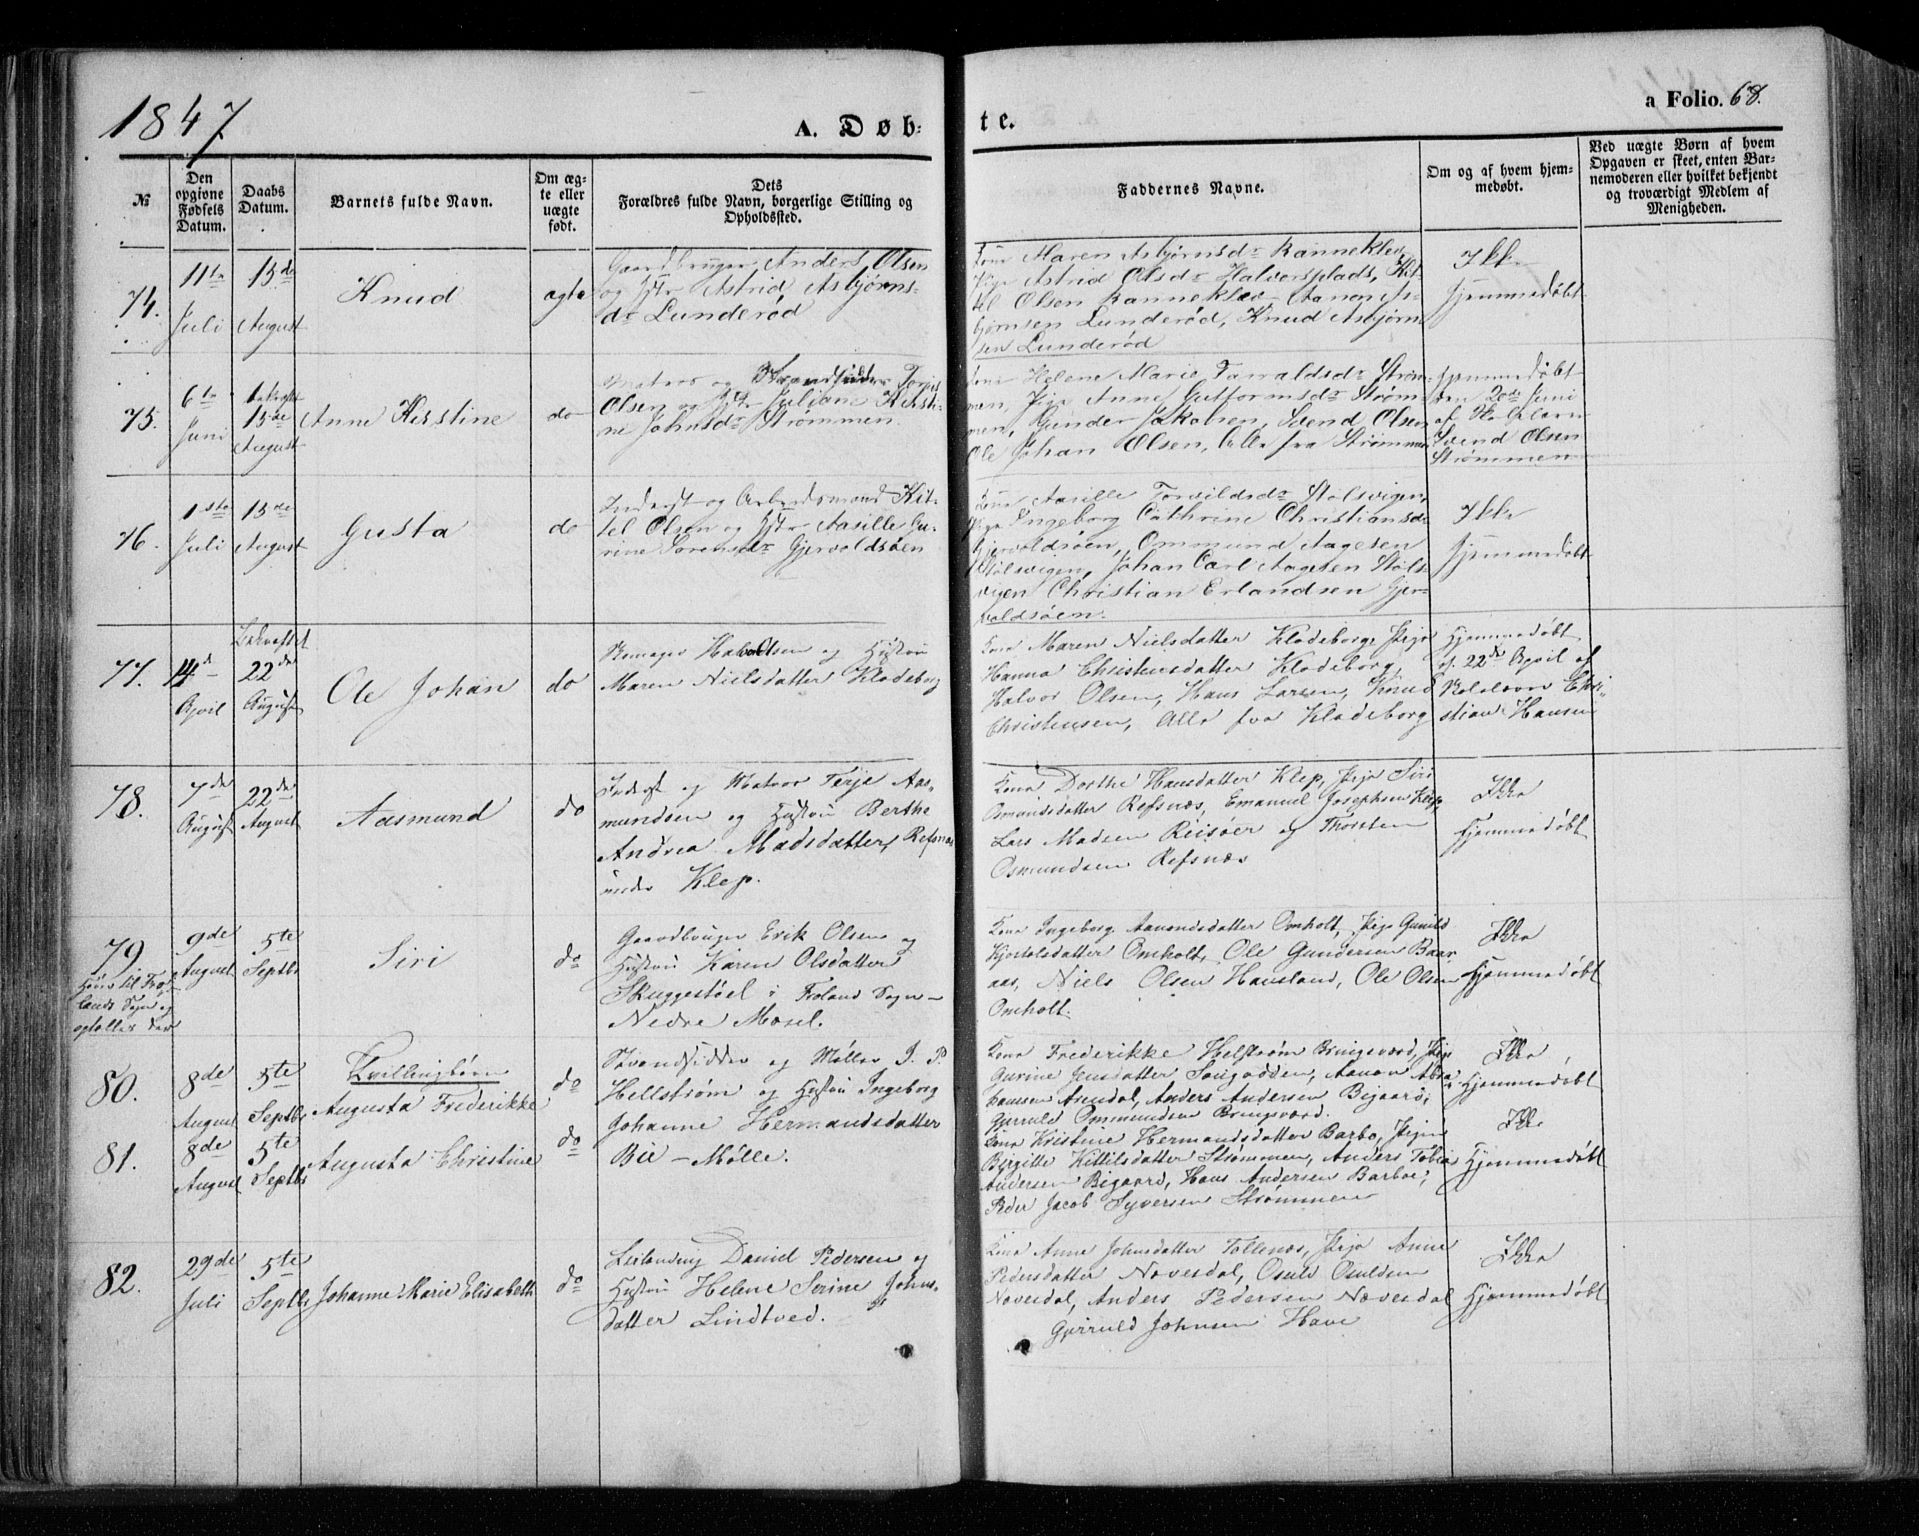 1847
A. Døb-
te.
a Folio. 68.
№
Den opgivne Fødsels Datum.
Daabs Datum.
Barnets fulde Navn.
Om ægte eller uægte født.
Dets Forældres fulde Navn, borgerlige Stilling og Opholdssted.
Faddernes Navne.
Om og af hvem hjemmedøbt.
Ved uægte Børn af hvem Opgaven er skeet, enten Barnemoderen eller hvilket bekjendt og troværdigt Medlem af Menigheden.
74.
11te Juli
15de August
Knud
ægte
Gaardbruger Anders Olsen
og Hstr Astrid Asbjørns-
dr Lunderød
Kone Maren Asbjørnsdr Ranneklev,
Pige Astrid Olsdr Halvorsplads, Kit-
tel Olsen Ranneklev - Aanon As-
bjørnsen Lunderød, Knud Asbjørn-
sen Lunderød
Ikke
hjemmedøbt
75.
6te Juni
15de August
Anne Kirstine
do
Matros og Strandsidder
Olsen og Hstr Juliane Kirsti-
ne Johnsdr Strømmen.
Kone Helene Marie Tarraldsdr Strøm-
men, Pige Anne Guttormsdr Strøm-
men, Gunder Jakobsen, Svend Olsen
Ole Johan Olsen, Alle fra Strømmen
hjemmedøbt
den 20de Juni
af
Svend Olsen
Strømmen
76.
1ste Juli
15de August
Gusta
do
Inderst og Arbeidsmand Kit-
tel Olsen og Hstr Aasille Gu-
rine Sørensdr Gjervoldsøen
Kone Aasille Torvildsdr Stølsvigen,
Pige Ingeborg Cathrine Christiansdr
Gjervoldsøen, Ommund Aagesen
Stølsvigen, Johan Carl Aagesen Støls-
vigen Christian Erlandsen Gjer-
voldsøen.
Ikke
hjemmedøbt
77.
14de April
Bekræftet 22de August
Ole Johan
do
Olsen og Hustru
Maren Nielsdatter Klodeborg
Kone Maren Nielsdatter Klodeborg, Pige
Hanna Christensdatter Klodeborg,
Halvor Olsen, Hans Larsen, Knud
Christensen, Alle fra Klodeborg
Hjemmedøbt
d. 22de April af
Skolelærer Chri-
stian Hansen
78.
7de August
22de August
Aasmund
do
Inderst og Matros Terje Aas-
mundsen og Hustru Berthe
Andrea Madsdatter, Refsnæs
under Klep.
Kone Dorthe Hansdatter Klep, Pige Siri
Osmundsdatter Refsnæs, Emanuel Josephsen Klep,
Lars Madsen Reisøer og Thorsten
Osmundsen Refsnæs
Ikke
Hjemmedøbt
79
Hører til Frø-
lands Sogn og
optælles der
9de August
5te Septbr
Siri
do
Gaardbruger Erik Olsen og
Hustru Karen Olsdatter
Skuggestøel i Froland Sogn -
Nedre Mosel.
Kone Ingeborg Aanondsdatter Omholt, Pige Gunild
Omholt, Ole Gundersen Baar-
aas, Niels Olsen Hausland, Ole Olsen
Omholt.
Ikke
Hjemmedøbt
80.
8de August
5te Septbr
Tvillingbørn
Augusta Frederikke
do
Strandsidder og Møller J. P.
Hellstrøm og Hustru Ingeborg
Johanne Hermandsdatter
Bie - Mølle.
Kone Frederikke Helstrøm Bringsværd, Pige
Gurine Jensdatter Songodden, Aanon Abra-
hamsen Arendal, Anders Andersen Bigaard,
Gjerruld Ommundsen Bringsværd.
Ikke
Hjemmedøbt
81.
8de August
5te Septbr
Augusta Christine
do
Kone Kristine Hermandsdatter Barbo, Pigen
Birgitte Kittilsdatter Strømmen, Anders Tobias
Andersen Bigaard, Hans Andersen Barboe,
Peder Jacob Syversen Strømmen
Ikke
Hjemmedøbt
82.
29de Juli
5te Septbr
Johanne Marie Elisabeth
do
Leilending Daniel Pedersen og
Hustru Helene Serine Johns-
datter Lindtved.
Kone Anne Johnsdatter Tollenæs, Pige Anne
Pedersdatter Næversdal, Osuld Osuldsen
Næversdal, Anders Pedersen Næversdal
Gjerruld Johnsen Have
Ikke
Hjemmedøbt